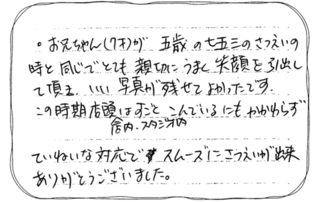 ・お兄ちゃん(7才)が 五歳の七五三のさつえいの
時と同じでとても 親切にうまく笑顔を引出し
て頂き、いい写真が残せてよかったです。
この時期店頭はすごくこんでいるにもかかわらず
舎内、スタジオ内
ていねいな対応で スムーズにさつえいが出来
ありがとうございました。